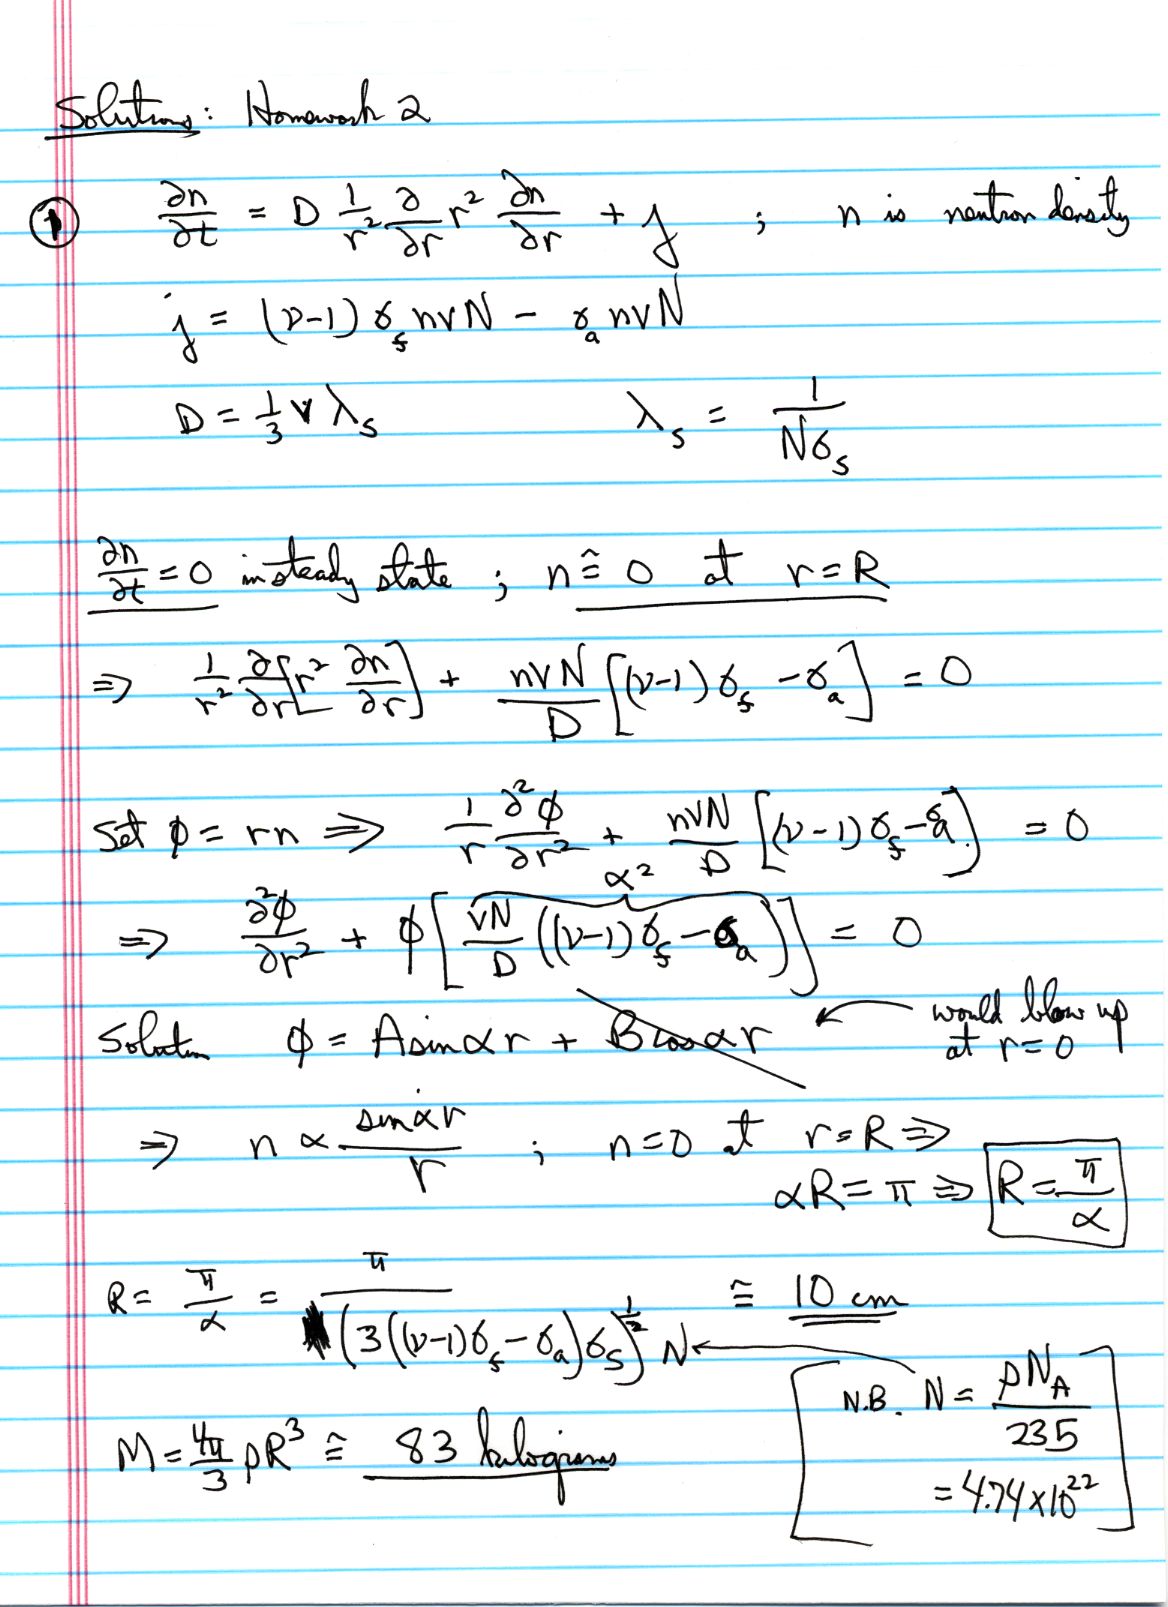 Solutions: Homework 2
① ∂n/∂t = D 1/r² ∂/∂r r² ∂n/∂r + j ; n is neutron density
j = (ν-1) σ_f nvN - σ_a nvN
D = 1/3 v λ_s    λ_s = 1/(Nσ_s)
∂n/∂t = 0 in steady state ; n ≅ 0 at r = R
⇒ 1/r² ∂/∂r [r² ∂n/∂r] + nvN/D [(ν-1) σ_f - σ_a] = 0
Set φ = rn ⇒ 1/r ∂²φ/∂r² + nvN/D [(ν-1) σ_f - σ_a] = 0
α²
⇒ ∂²φ/∂r² + φ [vN/D ((ν-1) σ_f - σ_a)] = 0
Solution φ = A sin αr + B cos αr ← would blow up at r = 0
⇒ n ∝ sin αr / r ; n = 0 at r = R ⇒
αR = π ⇒ R = π/α
R = π/α = π / ((3((ν-1)σ_f - σ_a)σ_s)^½ N) ≅ 10 cm
N.B. N = ρN_A/235
M = 4π/3 ρR³ ≅ 83 kilograms
= 4.74 x 10²²